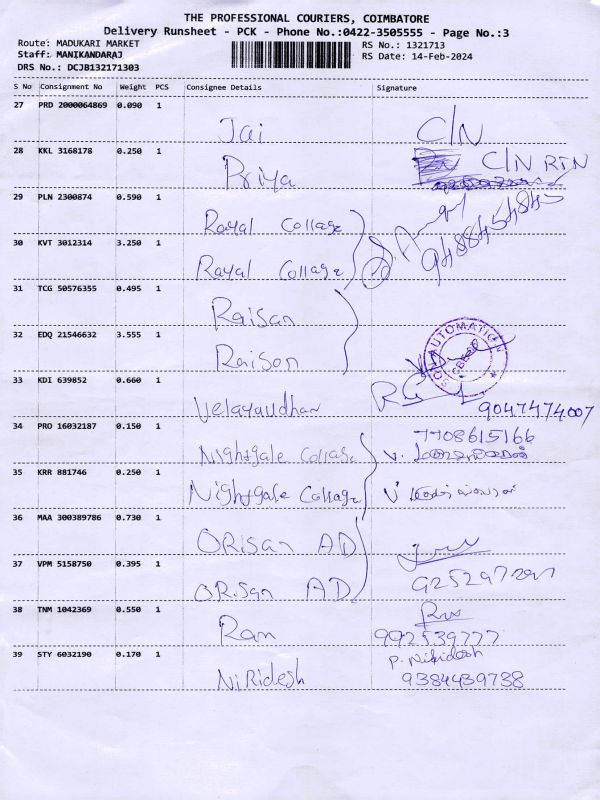 THE PROFESSIONAL COURIERS, COIMBATORE
Delivery Runsheet - PCK - Phone No.:0422-3505555 - Page No.:3
Route: MADUKARI MARKET RS No.: 1321713
Staff: MANIKANDARAJ RS Date: 14-Feb-2024
DRS No.: DCJB132171303
S No Consignment No Weight PCS Consignee Details Signature
27 PRD 2000064869 0.090 1 Jai C/N
28 KKL 3168178 0.250 1 Priya C/N RTN
29 PLN 2300874 0.590 1 Royal Collage
30 KVT 3012314 3.250 1 Rayal Collage 9488454845
31 TCG 50576355 0.495 1 Raisan
32 EDQ 21546632 3.555 1 Raison AUTOMATION
33 KDI 639852 0.660 1 Velayaudhan 9047474007
34 PRO 16032187 0.150 1 Nightgale Collage 7708615166
35 KRR 881746 0.250 1 Nightgale Collage
36 MAA 300389786 0.730 1 ORisan AD
37 VPM 5158750 0.395 1 ORisan AD
38 TNM 1042369 0.550 1 Ram 992539777
39 STY 6032190 0.170 1 NiRidesh P. Niridesh
9384439738